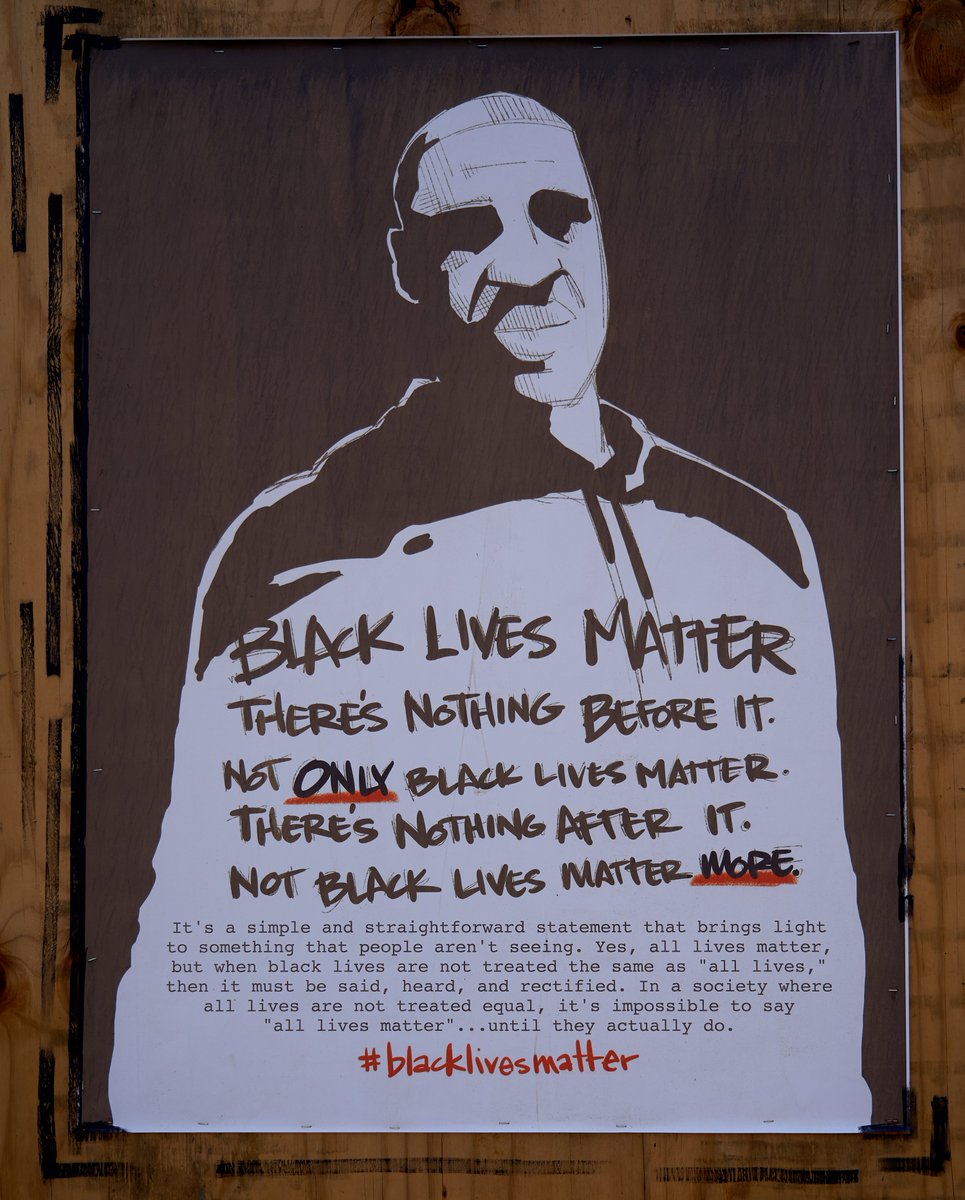 BLACK LIVES MATTER
THERE'S NOTHING BEFORE IT.
NOT ONLY BLACK LIVES MATTER.
THERE'S NOTHING AFTER IT.
NOT BLACK LIVES MATTER MORE.
It's a simple and straightforward statement that brings light
to something that people aren't seeing. Yes, all lives matter,
but when black lives are not treated the same as "all lives,"
then it must be said, heard, and rectified. In a society where
all lives are not treated equal, it's impossible to say
"all lives matter"...until they actually do.
#blacklivesmatter